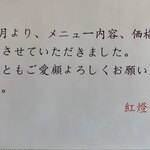 月より、メニュー内容、価格
させていただきました。
ともご愛顧よろしくお願い
。
紅燈